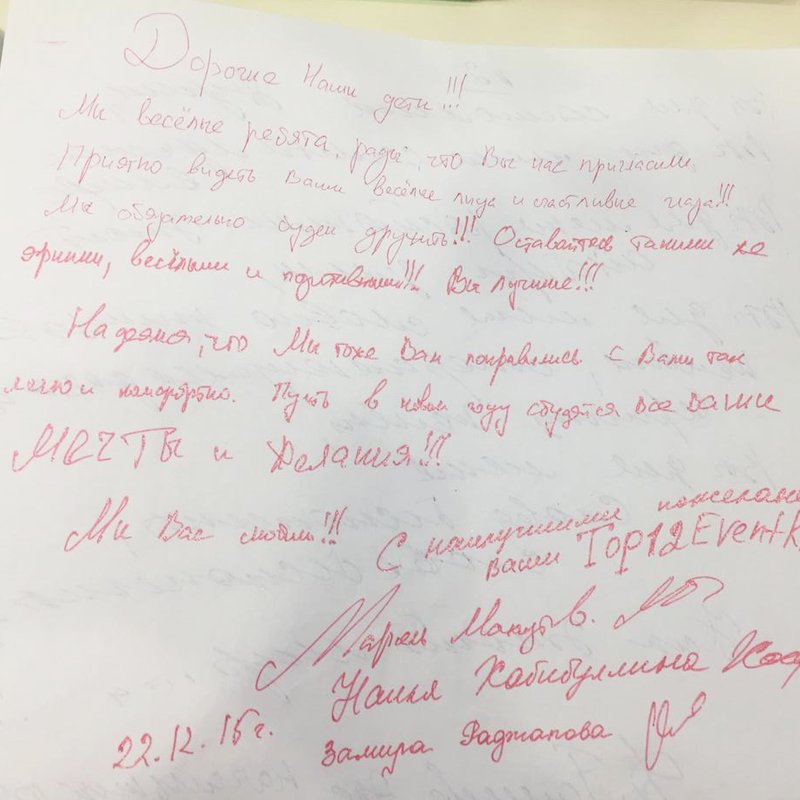 Дорогие Наши дети!!!
Мы весёлые ребята, рады, что Вы нас пригласили.
Приятно видеть Ваши весёлые лица и счастливые глаза!!!
Мы обязательно будем дружить!!! Оставайтесь такими же
яркими, весёлыми и позитивными!!! Вы лучшие!!!
Надеемся, что Мы тоже Вам понравились. С Вами так
легко и комфортно. Пусть в новом году сбудутся все Ваши
МЕЧТЫ и Желания!!!
Мы Вас любим!!! С наилучшими пожелани
Ваши Top12EventK
Марсель В.
Наиля Хабибуллина
22.12.15г. Замира Раджапова